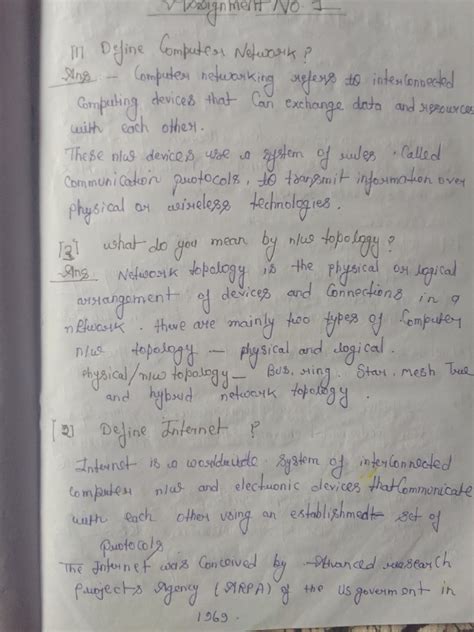 Assignment No. 1
[1] Define Computer Network?
Ans - Computer networking refers to interconnected
computing devices that can exchange data and resources
with each other.
These n/w devices use a system of rules, called
communication protocols, to transmit information over
physical or wireless technologies.
[3] what do you mean by n/w topology?
Ans. Network topology is the physical or logical
arrangement of devices and connections in a
network. there are mainly two types of computer
n/w topology — physical and logical.
physical/n/w topology - Bus, ring, Star, mesh Tree
and hybrid network topology.
[2] Define Internet ?
Internet is a worldwide system of interconnected
computer n/w and electronic devices that Communicate
with each other using an establishmed set of
protocols
The Internet was conceived by Advanced research
projects Agency (ARPA) of the US goverment in
1969.